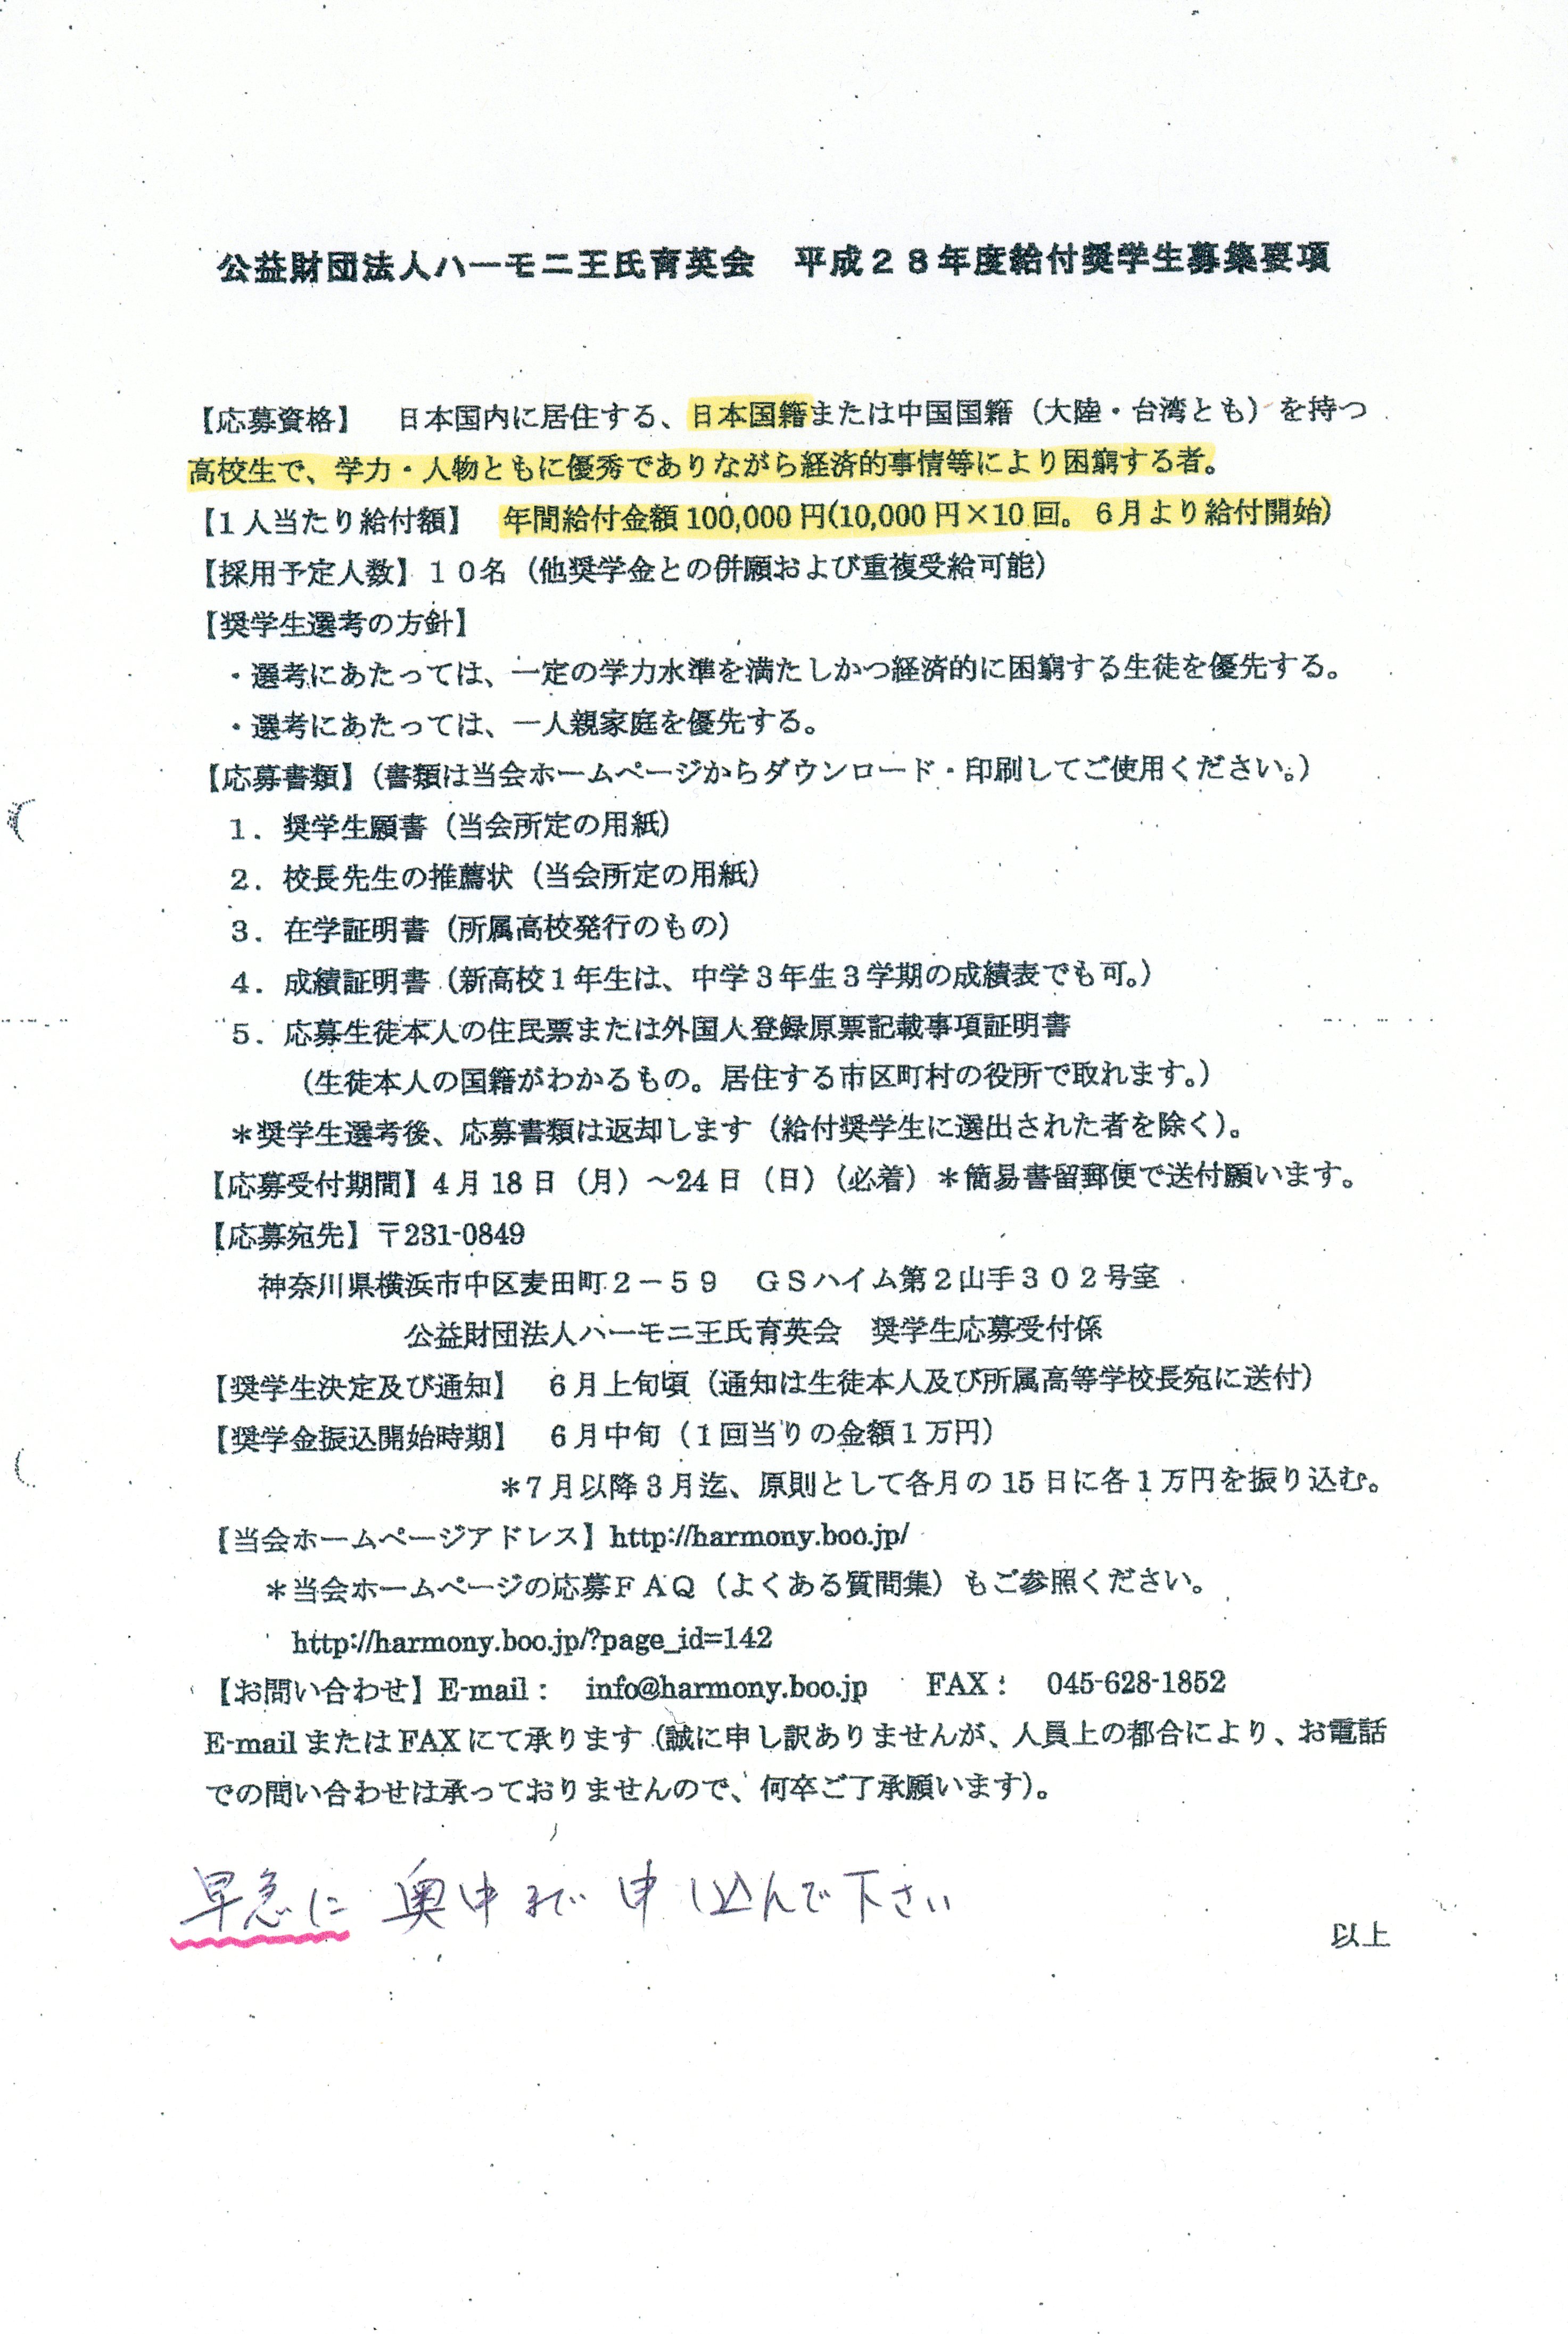 公益財団法人ハーモニ王氏育英会　平成２８年度給付奨学生募集要項
【応募資格】　日本国内に居住する、日本国籍または中国国籍（大陸・台湾とも）を持つ
高校生で、学力・人物ともに優秀でありながら経済的事情等により困窮する者。
【１人当たり給付額】　年間給付金額 100,000 円(10,000 円×10 回。６月より給付開始)
【採用予定人数】１０名（他奨学金との併願および重複受給可能）
【奨学生選考の方針】
・選考にあたっては、一定の学力水準を満たしかつ経済的に困窮する生徒を優先する。
・選考にあたっては、一人親家庭を優先する。
【応募書類】（書類は当会ホームページからダウンロード・印刷してご使用ください。）
１．奨学生願書（当会所定の用紙）
２．校長先生の推薦状（当会所定の用紙）
３．在学証明書（所属高校発行のもの）
４．成績証明書（新高校１年生は、中学３年生３学期の成績表でも可。）
５．応募生徒本人の住民票または外国人登録原票記載事項証明書
（生徒本人の国籍がわかるもの。居住する市区町村の役所で取れます。）
＊奨学生選考後、応募書類は返却します（給付奨学生に選出された者を除く）。
【応募受付期間】４月 18 日（月）～24 日（日）（必着）＊簡易書留郵便で送付願います。
【応募宛先】〒231-0849
神奈川県横浜市中区麦田町２－５９　ＧＳハイム第２山手３０２号室
公益財団法人ハーモニ王氏育英会　奨学生応募受付係
【奨学生決定及び通知】　６月上旬頃（通知は生徒本人及び所属高等学校長宛に送付）
【奨学金振込開始時期】　６月中旬（１回当りの金額１万円）
＊７月以降３月迄、原則として各月の 15 日に各１万円を振り込む。
【当会ホームページアドレス】http://harmony.boo.jp/
＊当会ホームページの応募ＦＡＱ（よくある質問集）もご参照ください。
http://harmony.boo.jp/?page_id=142
【お問い合わせ】E-mail：　info@harmony.boo.jp　　FAX：　045-628-1852
E-mail または FAX にて承ります（誠に申し訳ありませんが、人員上の都合により、お電話
での問い合わせは承っておりませんので、何卒ご了承願います）。
早急に 奥中まで 申し込んで下さい
以上